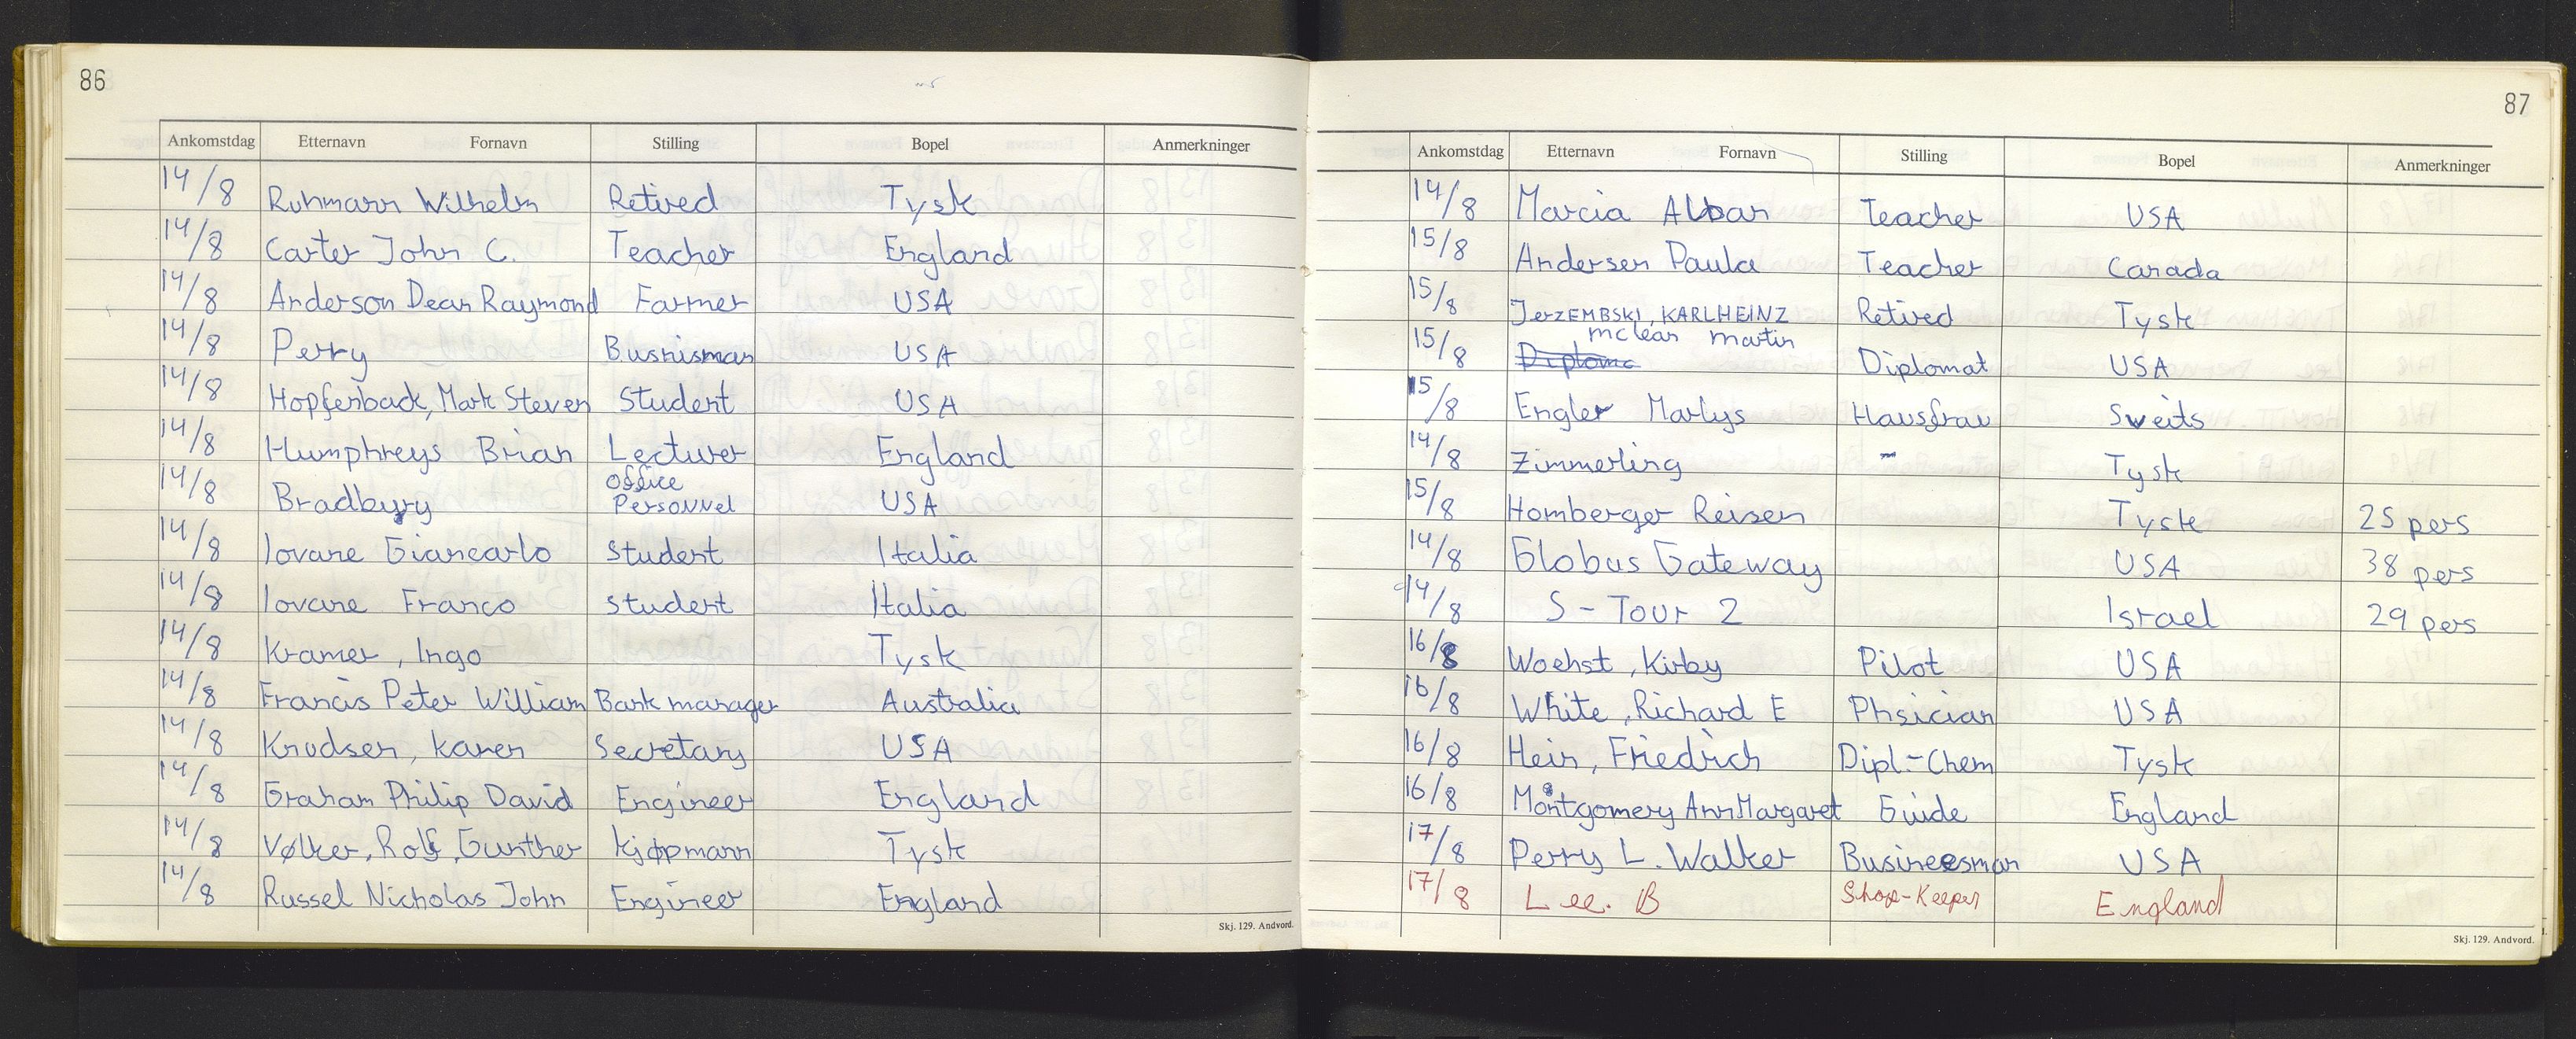 86
Ankomstdag Etternavn Fornavn Stilling Bopel Anmerkninger
14/8 Ruhmann Wilhelm Retired Tysk
14/8 Carter John C. Teacher England
14/8 Anderson Dean Raymond Farmer USA
14/8 Perry Busnisman USA
14/8 Hopfenback, Mark Steven Student USA
14/8 Humphreys Brian Lecturer England
14/8 Bradbury office Personnel USA
14/8 Iovane Giancarlo student Italia
14/8 Iovane Franco student Italia
14/8 Kramer, Ingo Tysk
14/8 Francis Peter William Bank manager Australia
14/8 Knudsen, Karen Secretary USA
14/8 Graham Philip David Engineer England
14/8 Vølker, Rolf, Gunther kjøpmann Tysk
14/8 Russel Nicholas John Engineer England
Skj. 129. Andvord.
87
Ankomstdag Etternavn Fornavn Stilling Bopel Anmerkninger
14/8 Marcia Alban Teacher USA
15/8 Andersen Paula Teacher Canada
15/8 JerzEMBSKI, KARLHEINZ Retired Tysk
15/8 Diploma mclean martin Diplomat USA
15/8 Engler Marlys Hausfrau Sveits
14/8 Zimmerling - Tysk
15/8 Homberger Reisen Tysk 25 pers
14/8 Globus Gateway USA 38 pers
14/8 S-Tour 2 Israel 29 pers
16/8 Woehst, Kirby Pilot USA
16/8 White, Richard E Phsician USA
16/8 Hein, Friedrich Dipl.-Chem Tysk
16/8 Montgomery Ann Margaret Guide England
17/8 Perry L. Walker Busineesman USA
17/8 Lee. B Shop-Keeper England
Skj. 129. Andvord.